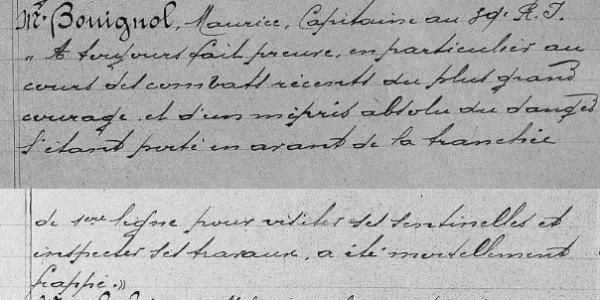 Mr. Bouignol, Maurice, Capitaine au 89e R. I.
" A toujours fait preuve, en particulier au
cours des combats récents du plus grand
courage et d'un mépris absolu du danger
S'étant porté en avant de la tranchée
de 1ère ligne pour visiter ses sentinelles et
inspecter ses travaux, a été mortellement
frappé. "